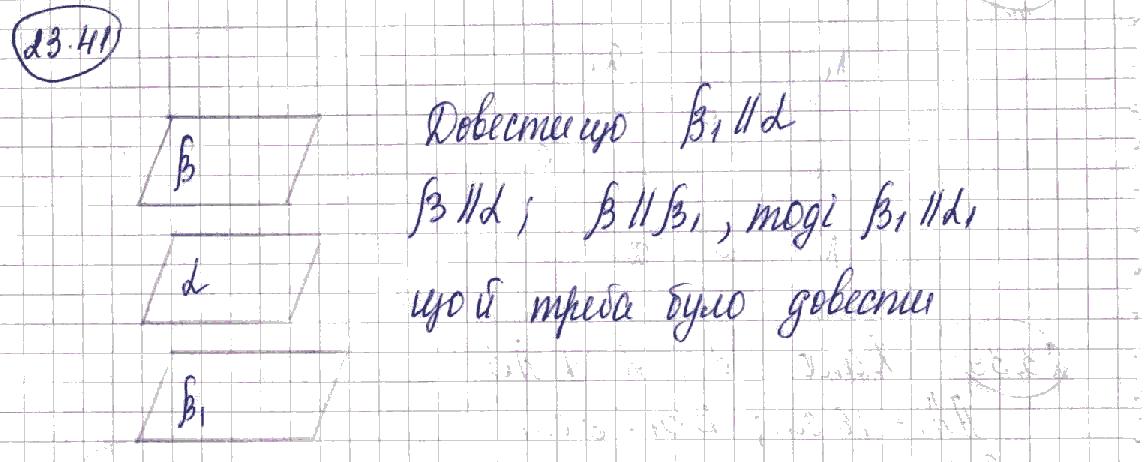 23.41
Довести що β₁ || α
β || α ; β || β₁ , тоді β₁ || α₁
що й треба було довести
β
α
β₁